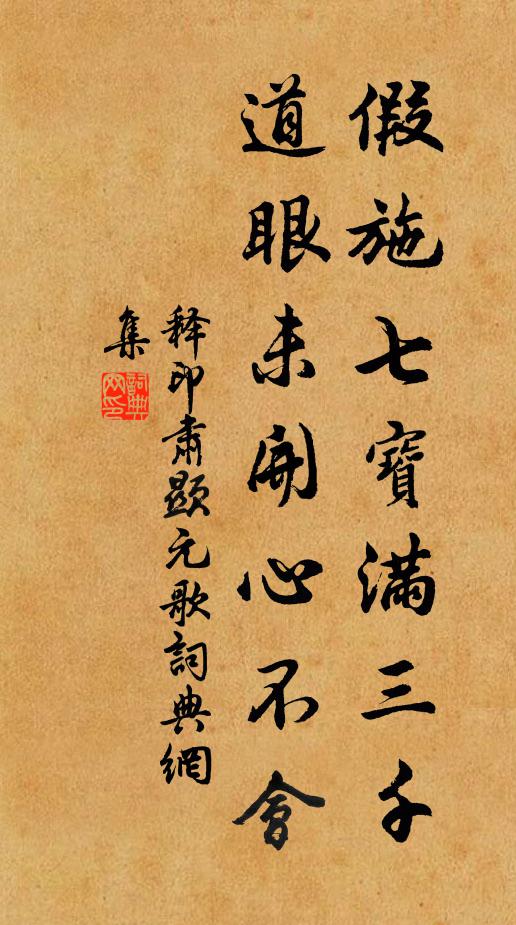 假施七寶滿三千
道眼未開心不會
释印肅顯元歌詞典網
集
詞典
网印